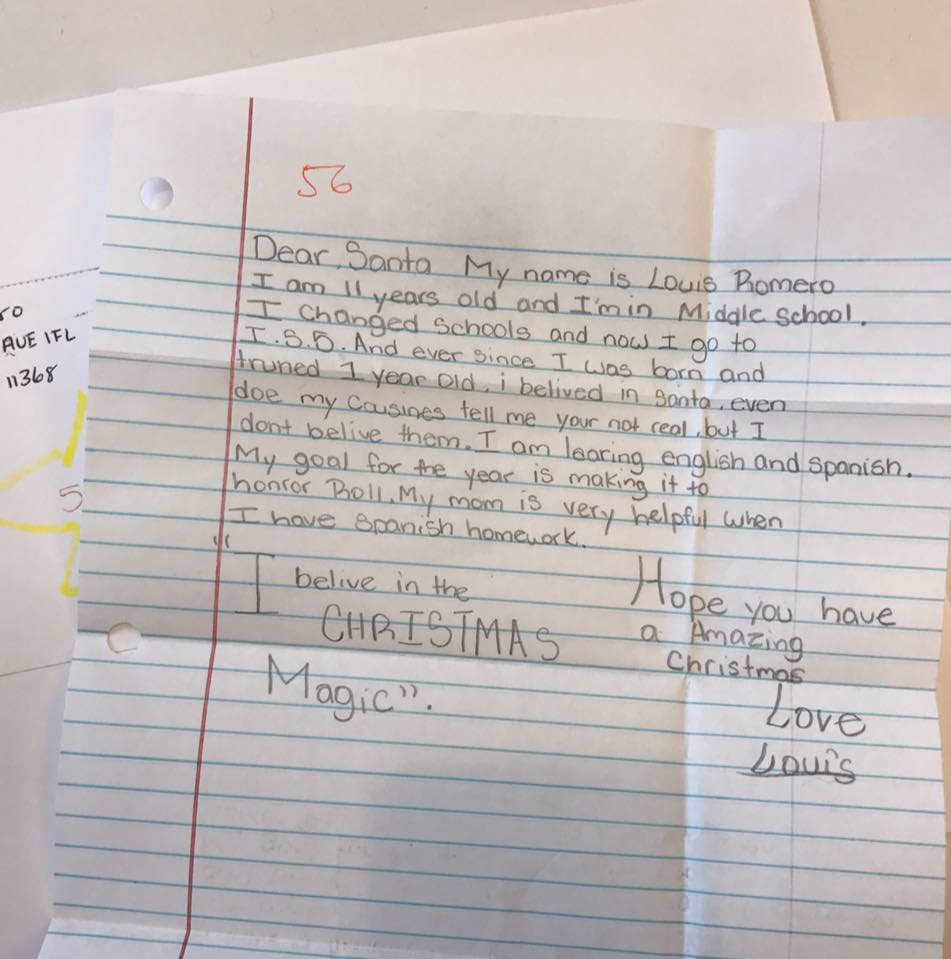 56
Dear, Santa My name is Louis Romero
I am 11 years old and I'm in Middle school.
I changed schools and now I go to
I.S.5. And ever since I was born and
truned 1 year old, i belived in Santa, even
doe my cousines tell me your not real, but I
dont belive them. I am learing english and spanish.
My goal for the year is making it to
honror Roll. My mom is very helpful when
I have spanish homework.
"I belive in the
CHRISTMAS
Magic".
Hope you have
a Amazing
Christmas
Love
Louis
AVE 1FL
11368
5